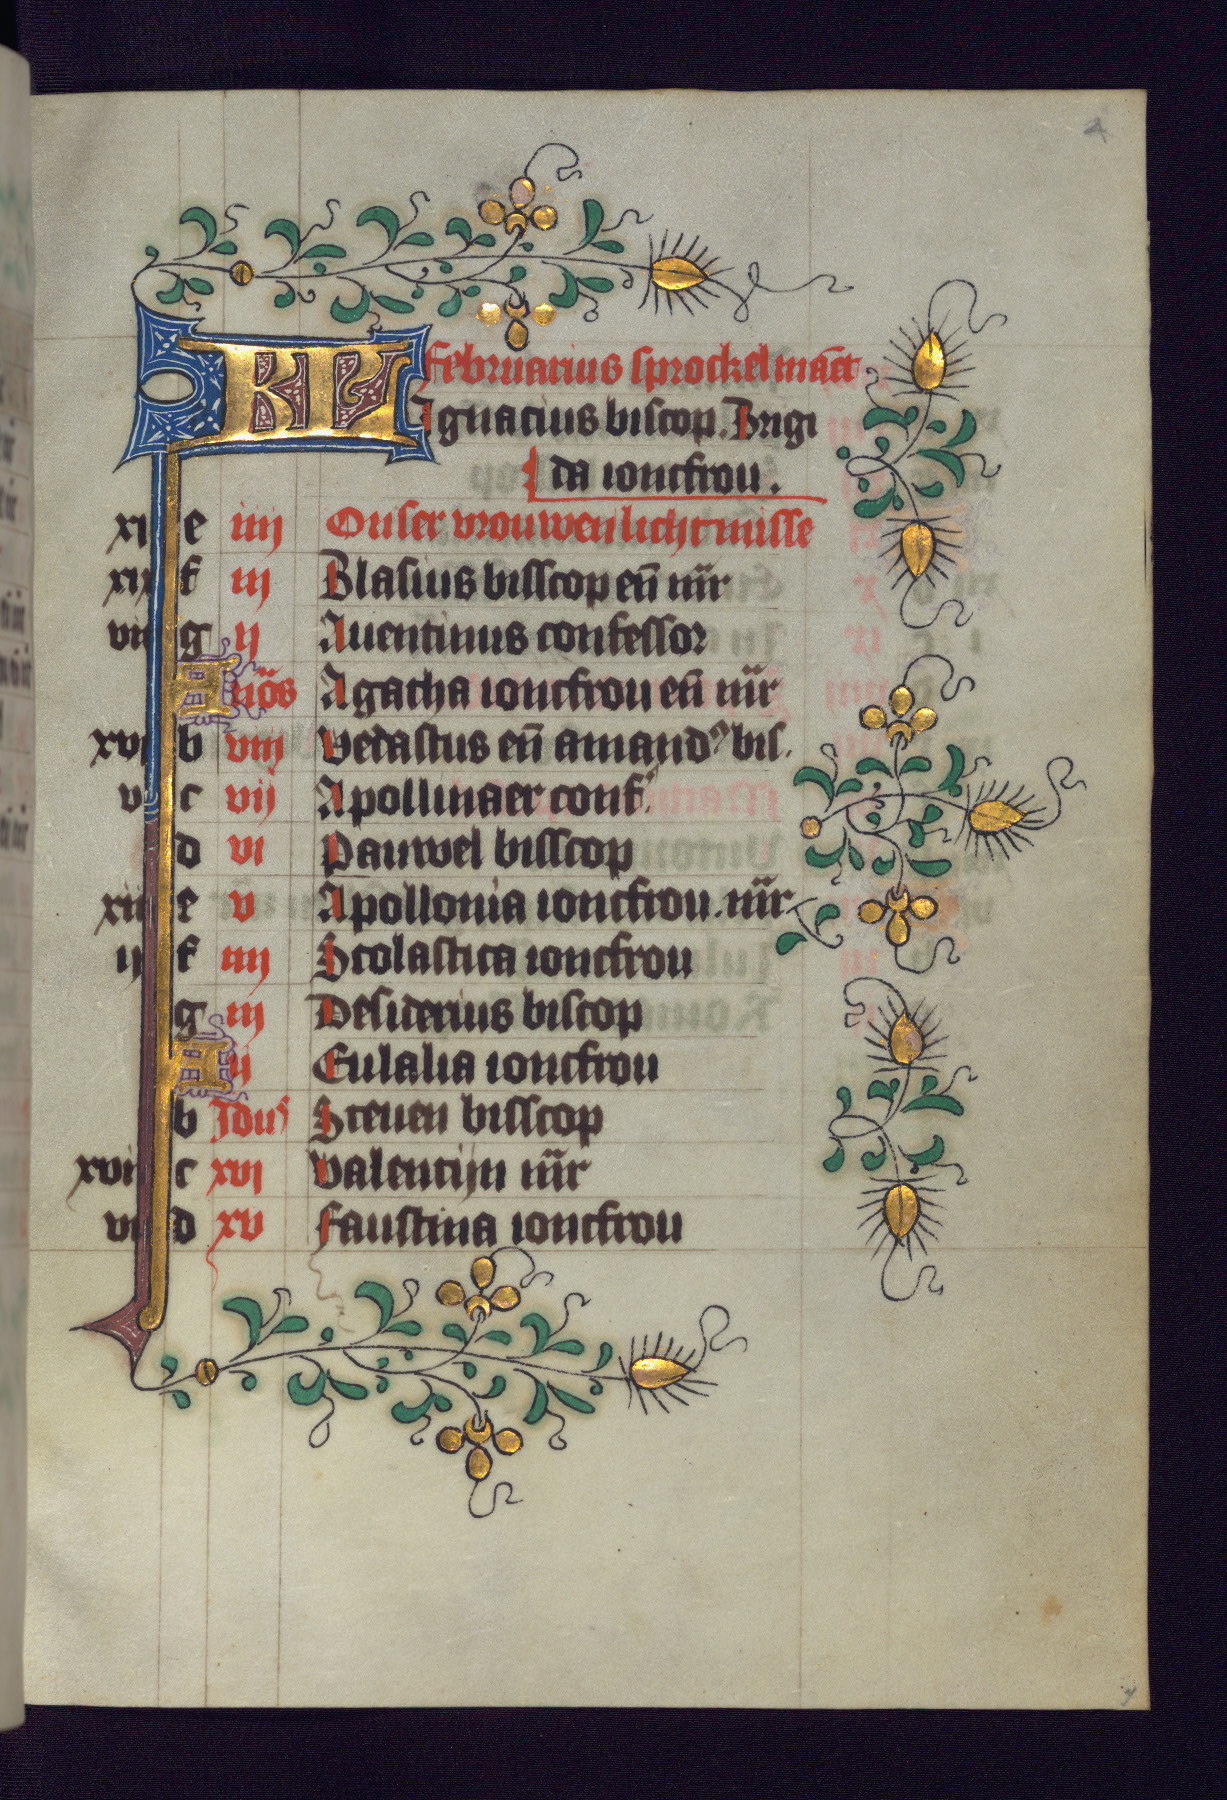 KL Februarius sprockel mae͞t
Ignacius biscop. Brigi
da ioncfrou.
xi e iiij Onser vrouwen lichtmisse
xix f iij Blasius bisscop en̄ mr̄
viij g ij Auentinus confessor
A nōs Agatha ioncfrou en̄ mr̄
xvi b viij Vedastus en̄ amandꝰ bis.
v c vij Apollinaer conf.
d vi Pauwel bisscop
xiii e v Apollonia ioncfrou. mr̄
ij f iiij Scolastica ioncfrou
g iij Desiderius biscop
A ij Eulalia ioncfrou
b Idus Steuen bisscop
c xvi Valentijn mr̄
d xv Faustina ioncfrou